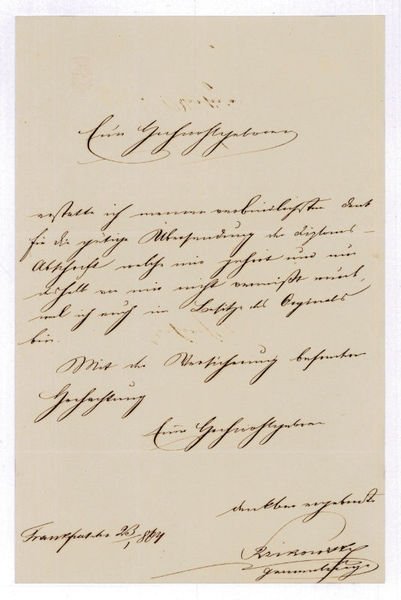 Euer Hochwohlgeboren
erstatte ich meinen verbindlichsten Dank
für die gütige Übersendung der Diploms-
Abschrift welche mir gehört und nun
deßhalb von mir nicht vermißt
weil ich auch im Besitze des Originals
bin.
Mit der Versicherung besonderer
Hochachtung
Euer Hochwohlgeboren
dankbar ergebenster
Frankfurt 23/1 1864